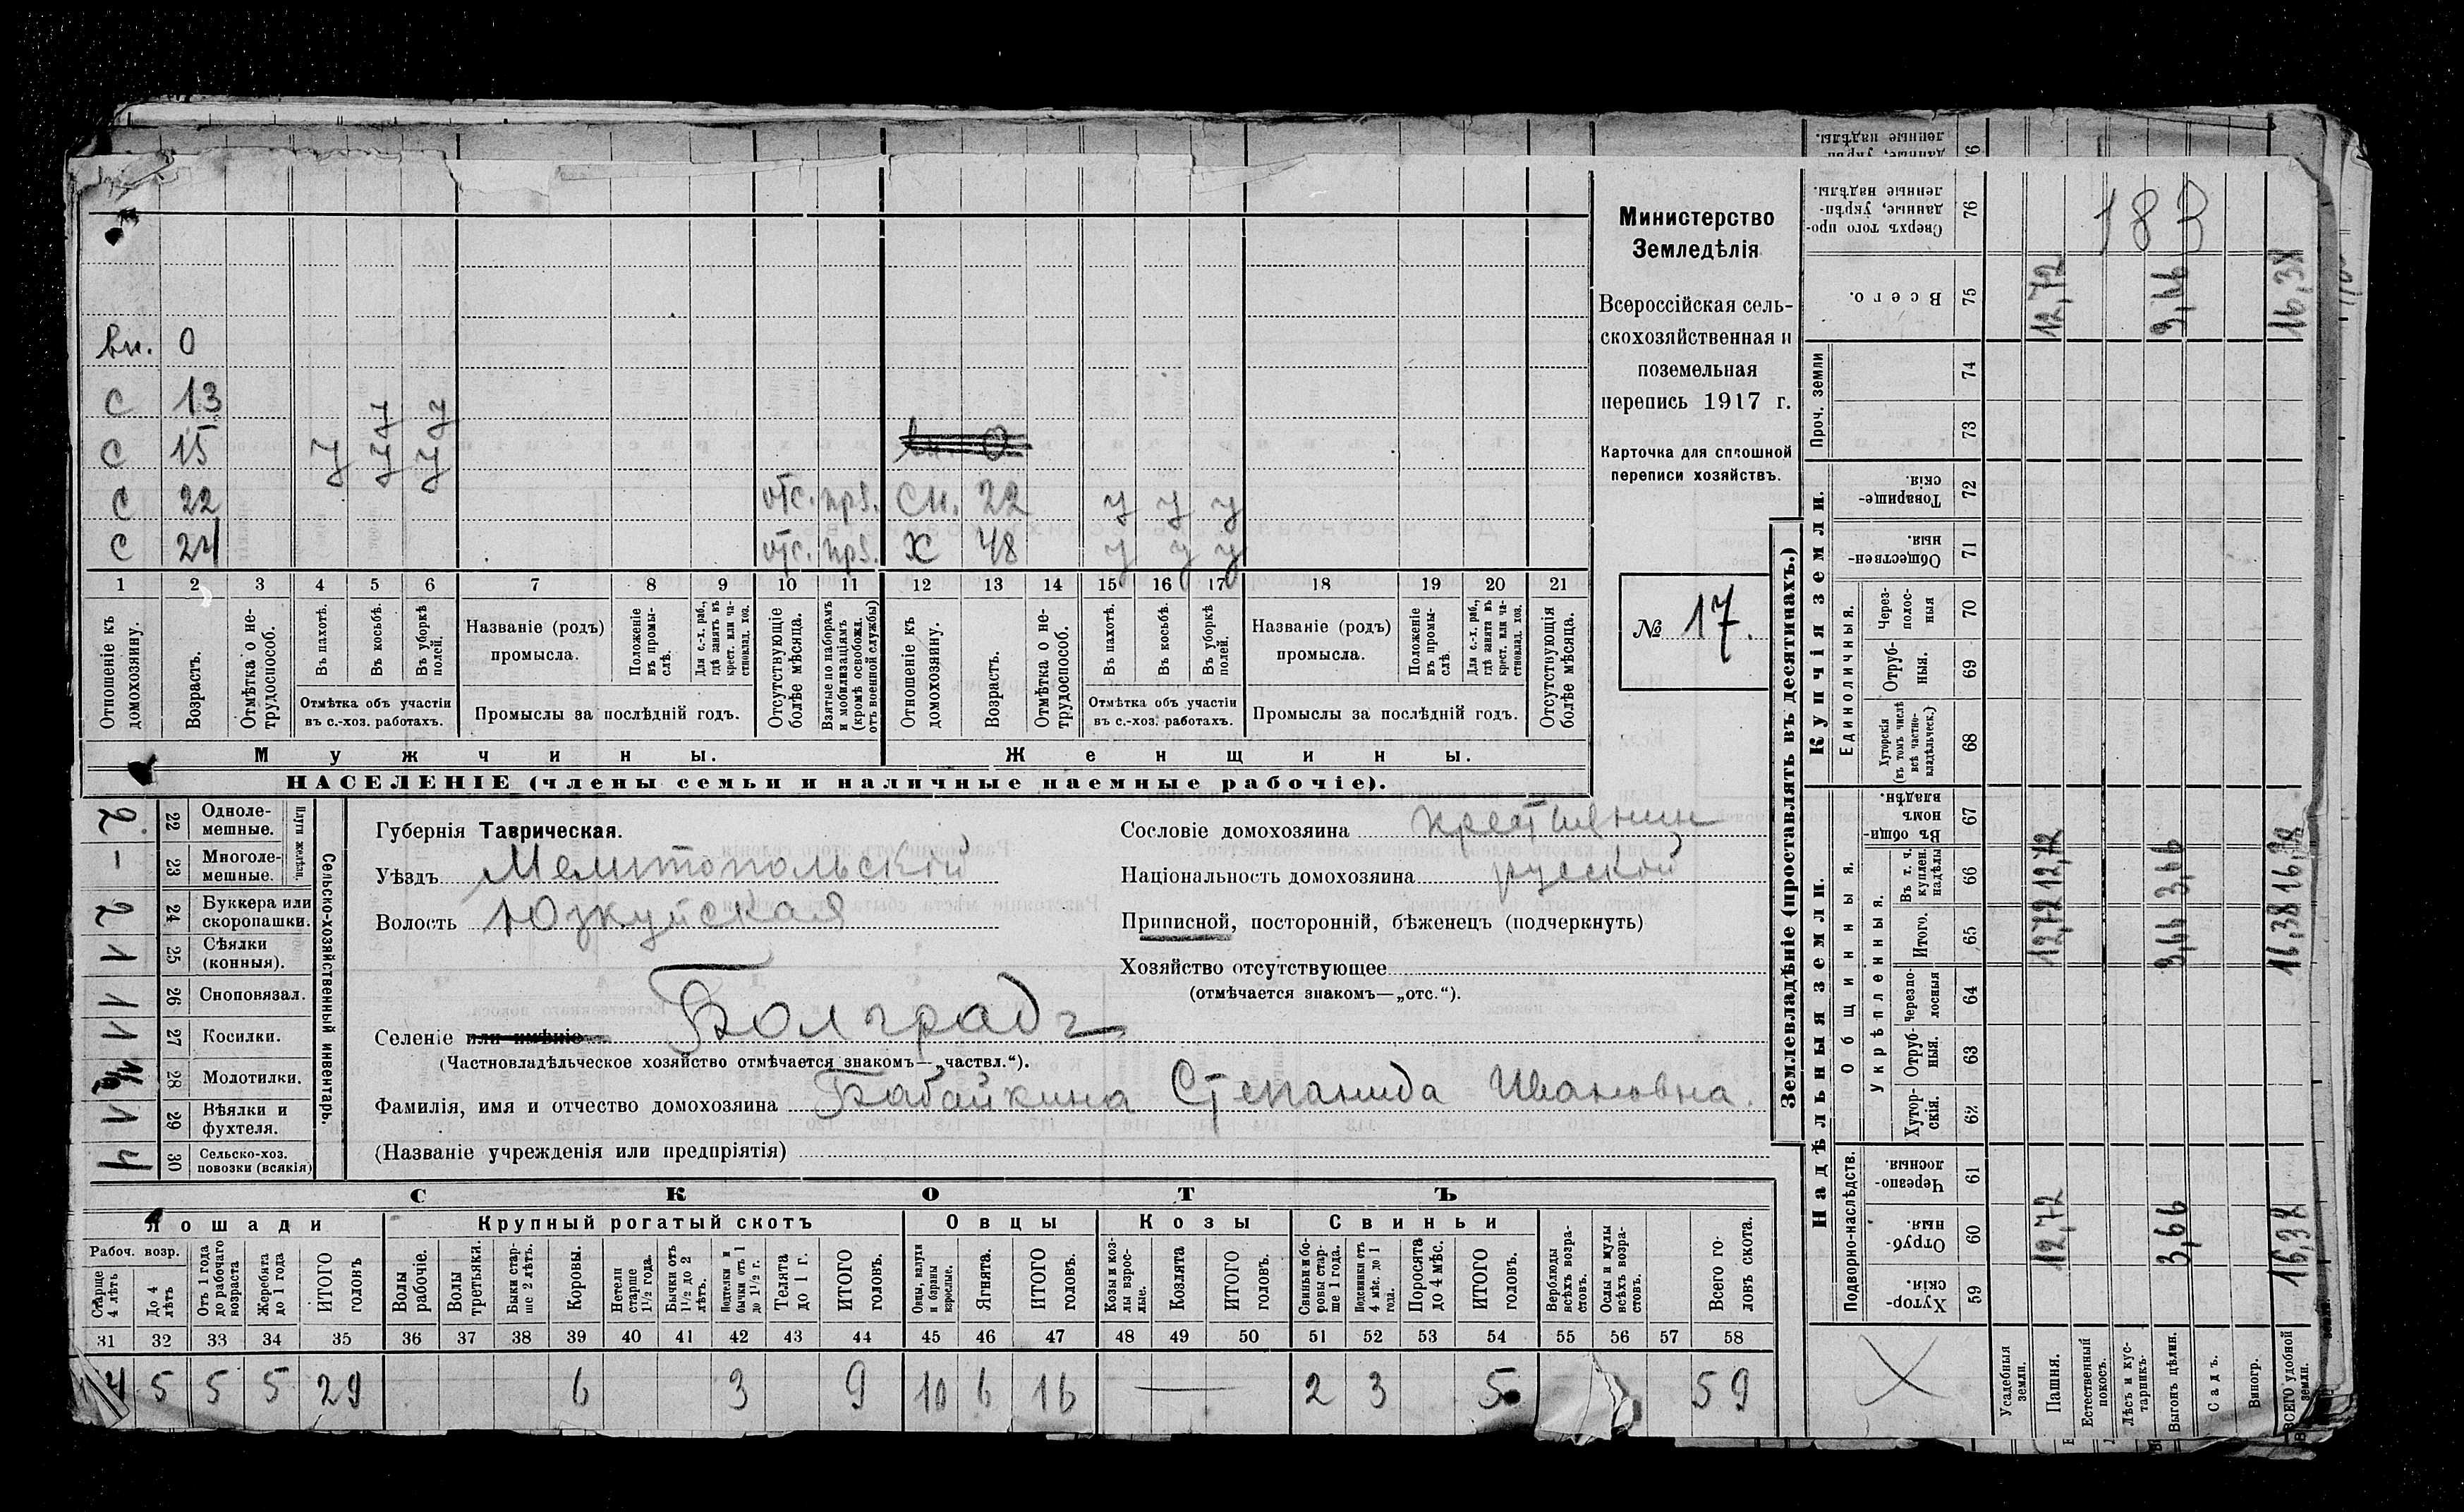 вн. 0
с 13 у у
с 15 у у у вн. 0
с 22 отс. прз. сн. 22 у у у
с 24 отс. прз. х 48 у у у
1 2 3 4 5 6 7 8 9 10 11 12 13 14 15 16 17 18 19 20 21
Отношеніе къ домохозяину.
Возрастъ.
Отмѣтка о не-трудоспособ.
Въ пахотѣ.
Въ косьбѣ.
Въ уборкѣ полей.
Отмѣтка объ участіи въ с.-хоз. работахъ.
Названіе (родъ) промысла.
Положеніе въ промы-слѣ.
Для с.-х. раб., гдѣ занятъ въ крест. или ча-стновлад. хоз.
Промыслы за послѣдній годъ.
Отсутствующіе болѣе мѣсяца.
Взятые по наборамъ и мобилизаціямъ (кромѣ освобожд. отъ военной службы)
Отношеніе къ домохозяину.
Возрастъ.
Отмѣтка о не-трудоспособ.
Въ пахотѣ.
Въ косьбѣ.
Въ уборкѣ полей.
Отмѣтка объ участіи въ с.-хоз. работахъ.
Названіе (родъ) промысла.
Положеніе въ промы-слѣ.
Для с.-х. раб., гдѣ занята въ крест. или ча-стновлад. хоз.
Промыслы за послѣдній годъ.
Отсутствующія болѣе мѣсяца.
Мужчины. Женщины.
НАСЕЛЕНІЕ (члены семьи и наличные наемные рабочіе).
Министерство
Земледѣлія
Всероссійская сель-
скохозяйственная и
поземельная
перепись 1917 г.
Карточка для сплошной
переписи хозяйствъ.
№ 17.
Сельско-хозяйственный инвентарь.
Плуги желѣзн.
2 22 Одноле-мешные.
– 23 Многоле-мешные.
2 24 Буккера или скоропашки.
1 25 Сѣялки (конныя).
1 26 Сноповязал.
1 27 Косилки.
28 Молотилки.
1 29 Вѣялки и фухтеля.
4 30 Сельско-хоз. повозки (всякія)
Губернія Таврическая.
Уѣздъ Мелитопольской
Волость Юзкуйская
Селеніе или имѣніе Болградъ
(Частновладѣльческое хозяйство отмѣчается знакомъ—„частвл.“).
Фамилія, имя и отчество домохозяина Бабайкина Степанида Ивановна.
(Названіе учрежденія или предпріятія)
Сословіе домохозяина крестьянин
Національность домохозяина русской
Приписной, посторонній, бѣженецъ (подчеркнуть)
Хозяйство отсутствующее
(отмѣчается знакомъ—„отс.“).
СКОТЪ
Лошади Крупный рогатый скотъ Овцы Козы Свиньи
Рабоч. возр.
Старше 4 лѣтъ
До 4 лѣтъ
Отъ 1 года до рабочаго возраста
Жеребята до 1 года
ИТОГО головъ
Волы рабочіе.
Волы третьяки.
Быки стар-ше 2 лѣтъ.
Коровы.
Нетели старше 1½ года.
Бычки отъ 1½ до 2 лѣтъ.
Подтелки и бычки отъ 1 до 1½ г.
Телята до 1 г.
ИТОГО головъ.
Овцы, валухи и бараны взрослые.
Ягнята.
ИТОГО головъ.
Козы и коз-лы взрос-лые.
Козлята
ИТОГО головъ.
Свиньи и бо-ровы стар-ше 1 года.
Подсвинки отъ 4 мѣс. до 1 года.
Поросята до 4 мѣс.
ИТОГО головъ.
Верблюды всѣхъ возра-стовъ.
Ослы и мулы всѣхъ возра-стовъ.
Всего го-ловъ скота.
31 32 33 34 35 36 37 38 39 40 41 42 43 44 45 46 47 48 49 50 51 52 53 54 55 56 57 58
14 5 5 5 29 6 3 9 10 6 16 — 2 3 5 59
Землевладѣніе (проставлять въ десятинахъ.)
Надѣльныя земли. Купчія земли. Проч. земли
Подворно-наслѣдств.
Общинныя.
Укрѣпленныя.
Единоличныя.
Хутор-скія. 59
Отруб-ныя. 60
Черезпо-лосныя. 61
Хутор-скія. 62
Отруб-ныя. 63
Черезпо-лосныя 64
Итого. 65
Въ т. ч. куплен. надѣлы 66
Въ общи-номъ владѣн. 67
Хуторскія (въ томъ числѣ всѣ частно-владѣльческ.) 68
Отруб-ныя. 69
Через-полос-ныя 70
Обществен-ныя. 71
Товарище-скія. 72
73
74
Всего. 75
Сверхъ того про-данные, укрѣп-ленные надѣлы. 76
183
Усадебныя земли.
Пашня. 12,72 12,72 12,72 12,72
Естественный покосъ.
Лѣсъ и кус-тарникъ.
Выгонъ цѣлин. 3,66 3,66 3,66 3,66
Садъ.
Виногр.
ВСЕГО удобной земли. 16,38 16,38 16,38 16,38